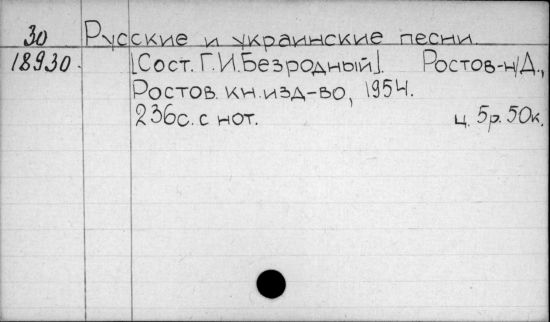 30 Русские и украинские песни.
18930. [Сост. Г.И.Безродный]. Ростов-н/Д.,
Ростов. кн. изд-во, 1954.
236с. с нот. ц. 5р. 50к.